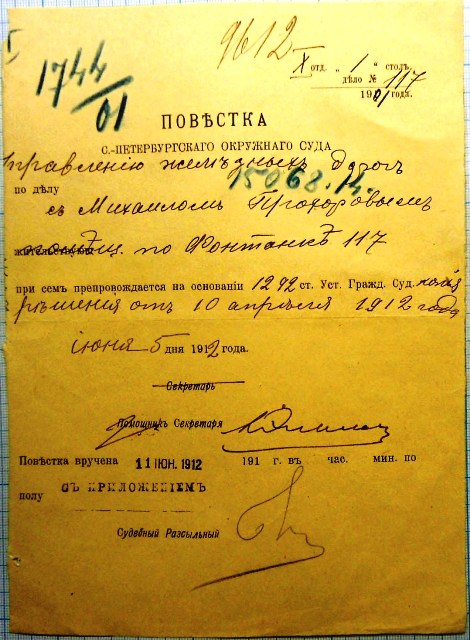 9612
1744/01
X отд. „1“ столъ.
дѣло № 117
1901 года.
ПОВѢСТКА
С.-ПЕТЕРБУРГСКАГО ОКРУЖНАГО СУДА
Управленію желѣзныхъ дорогъ
15068.14.
по дѣлу
съ Михаиломъ Прохоровымъ
жительствующ. по Фонтанкѣ 117
при семъ препровождается на основаніи 1292 ст. Уст. Гражд. Суд. копія
рѣшенія отъ 10 апрѣля 1912 года
іюня 5 дня 1912 года.
Секретарь
Помощникъ Секретаря
Повѣстка вручена 11 ІЮН. 1912 191 г. въ час. мин. по
полу СЪ ПРИЛОЖЕНІЕМЪ
Судебный Разсыльный